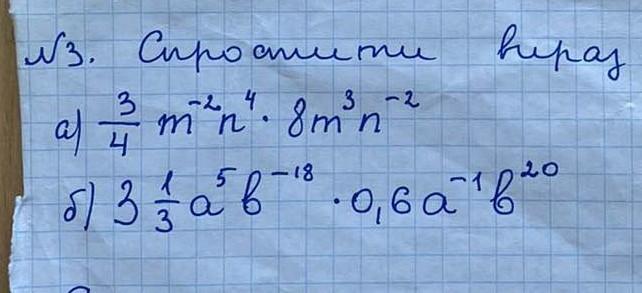 №3. Спростити вираз
а) 3/4 m⁻²n⁴ · 8m³n⁻²
б) 3 1/3 a⁵b⁻¹⁸ · 0,6a⁻¹b²⁰